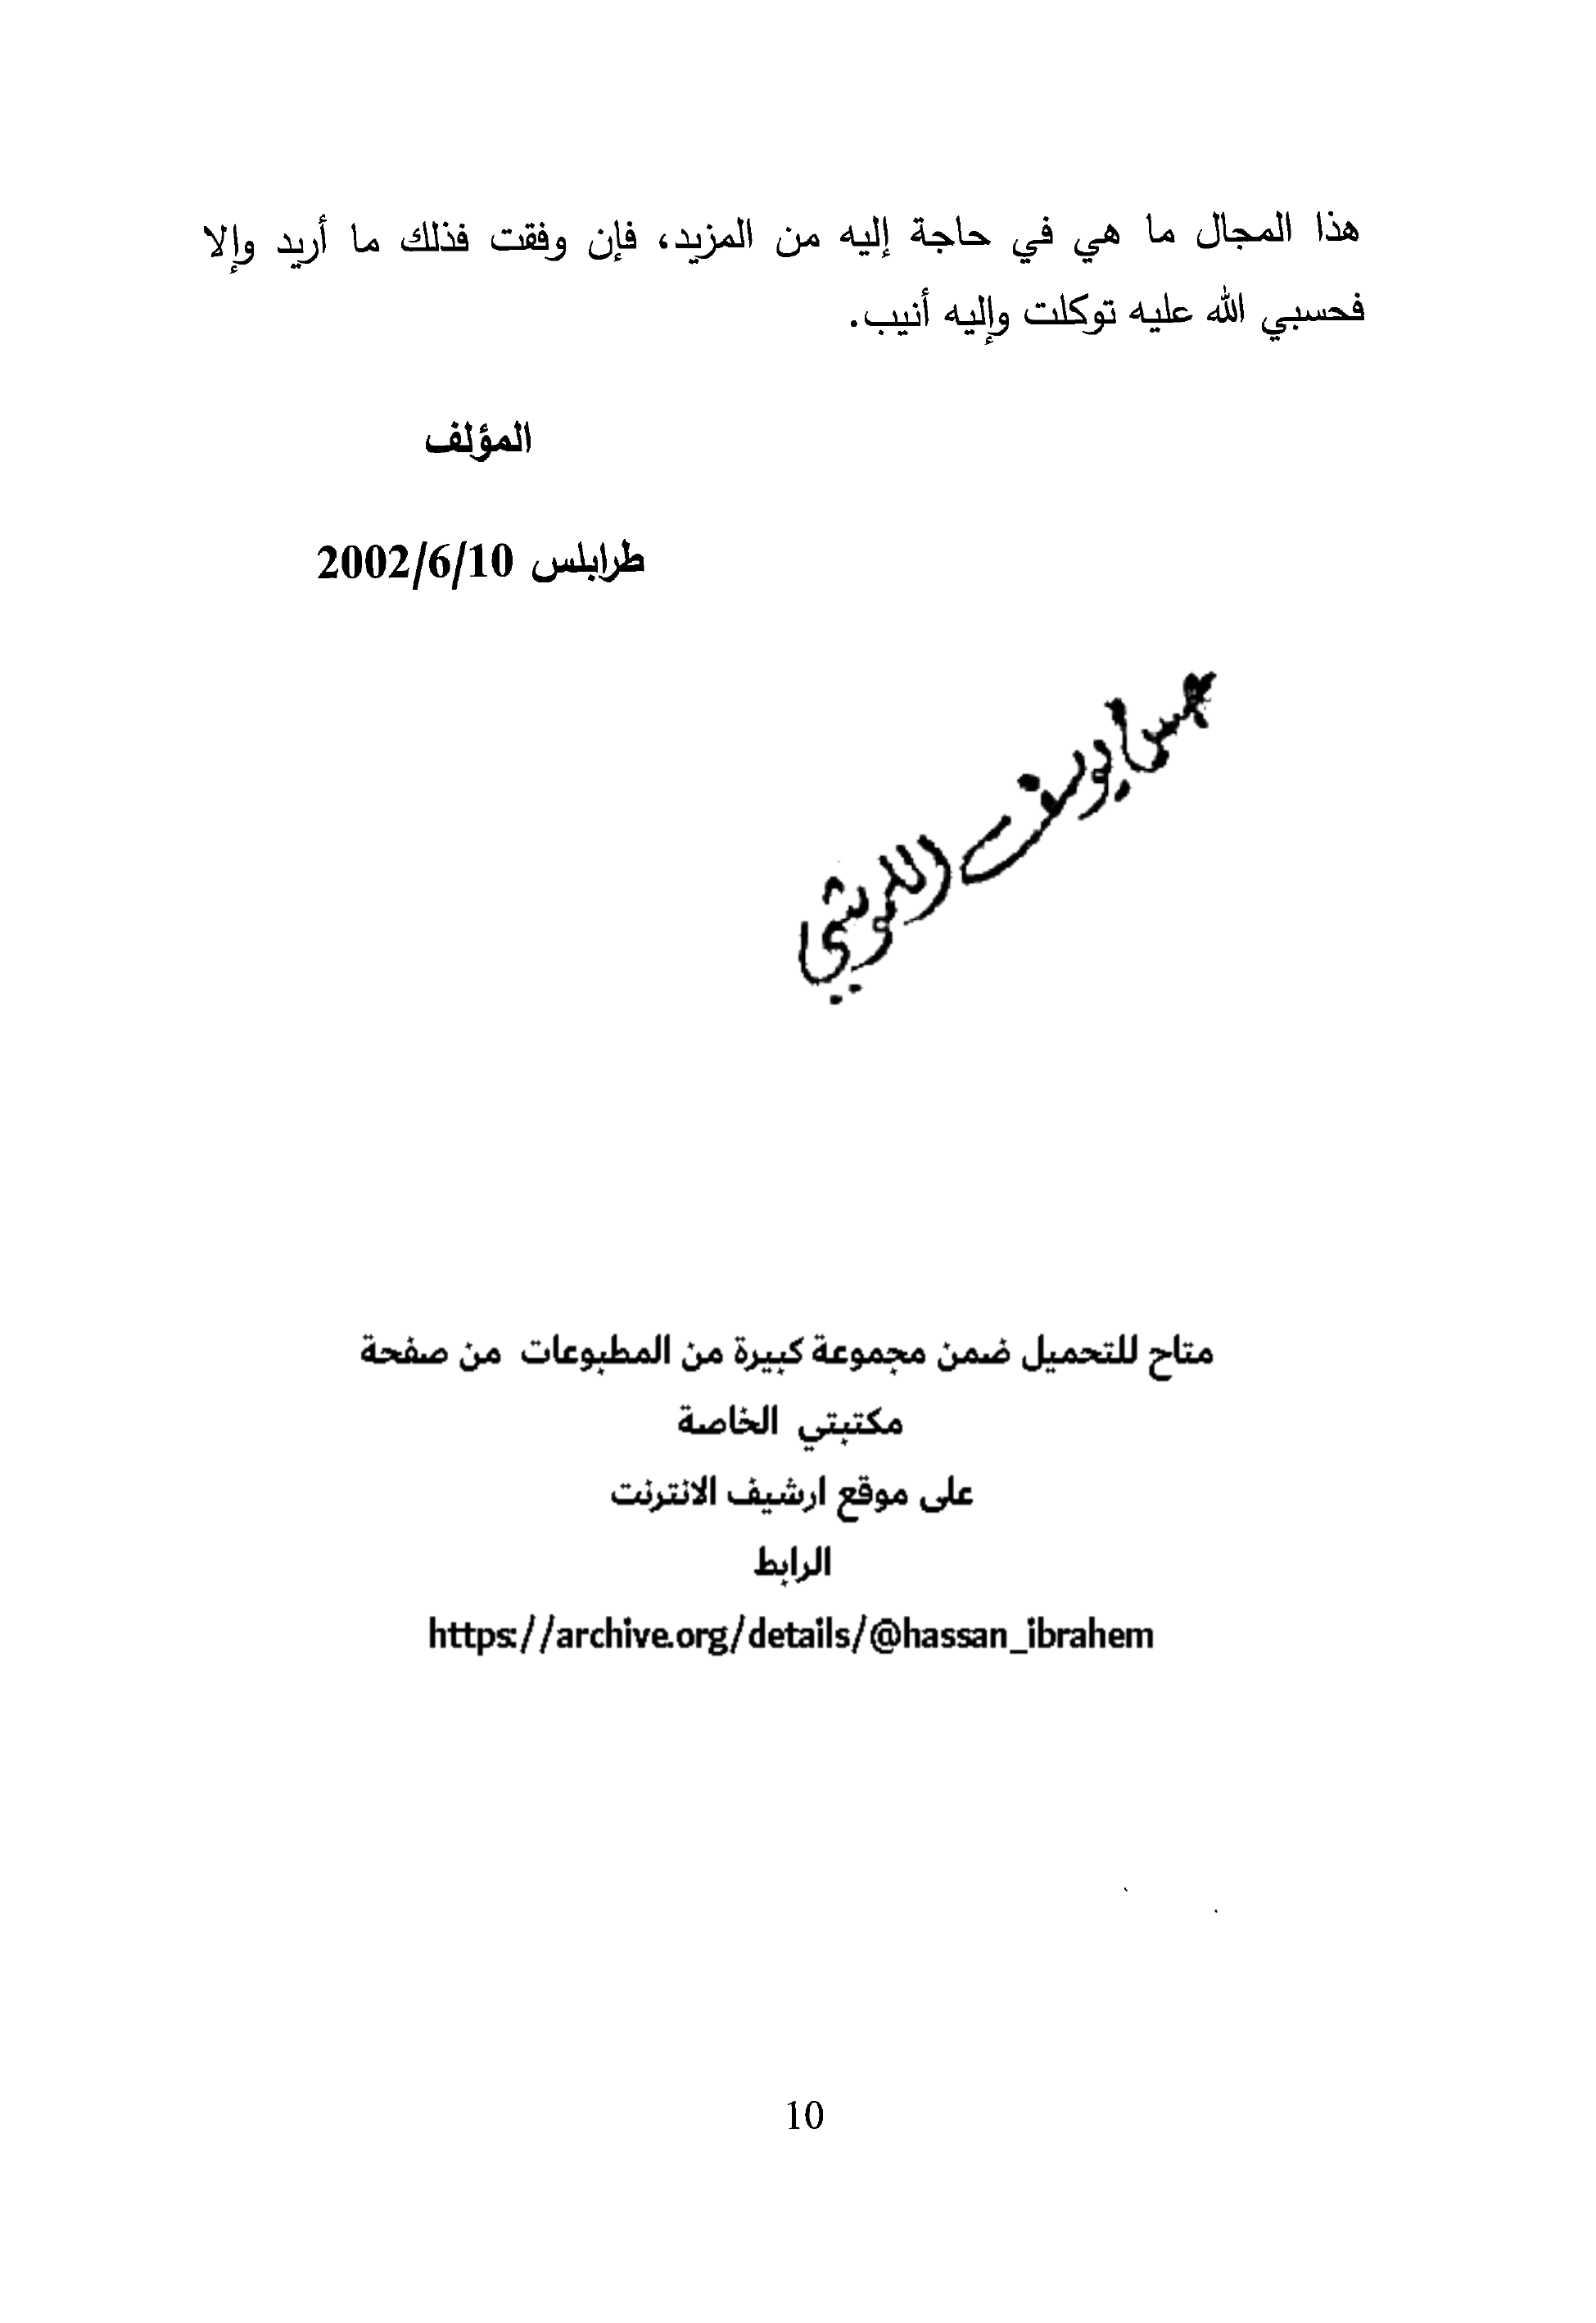 هذا المجال ما هي في حاجة إليه من المزيد، فإن وفقت فذلك ما أريد وإلا
فحسبي الله عليه توكلت وإليه أنيب.
المؤلف
طرابلس 2002/6/10
يوسف
متاح للتحميل ضمن مجموعة كبيرة من المطبوعات من صفحة
مكتبتي الخاصة
على موقع ارشيف الانترنت
الرابط
https://archive.org/details/@hassan_ibrahem
10